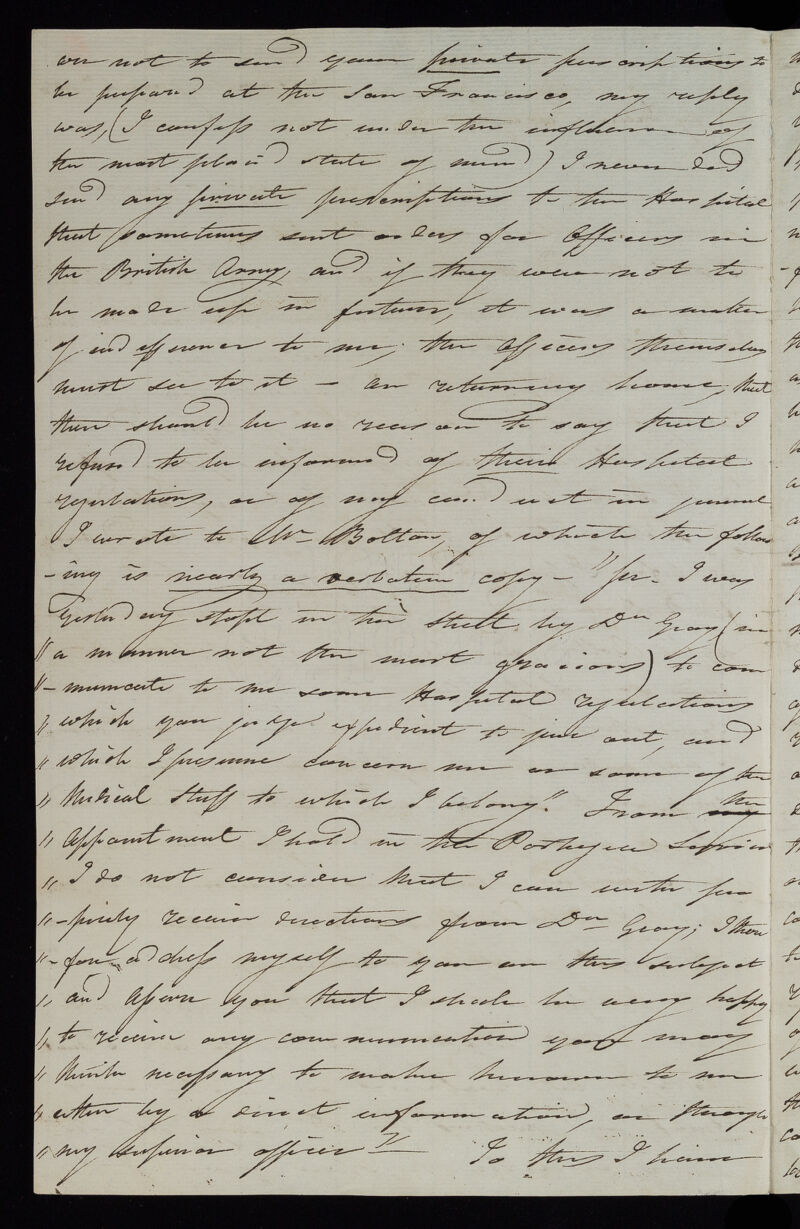 are not to send your private prescriptions to
be prepared at the San Francisco, my reply
was, (I confess not under the influence of
the most placid state of mind) I never did
send any private prescriptions to the Hospital
that I sometimes sent orders for Officers in
the British Army, and if they were not to
be made up in future, it was a matter
of indifference to me; the Officers themselves
must see to it – on returning home, that
there should be no reason to say that I
refused to be informed of their Hospital
regulations, or of my conduct in general
I wrote to Mr Bolton, of which the follow
-ing is nearly a verbatim copy – "Sir – I was
yesterday stopt in the street by Dr Gray (in
" a manner not the most gracious) to com
"-municate to me some Hospital regulations
" which you judge expedient to give out, and
" which I presume concern me or some of the
" Medical Staff to which I belong". From my the
" Appointment I hold in the Portugese Service
" I do not consider that I can with pro
"-priety receive directions from Dr Gray; I there
"-fore address myself to you on this subject
" and assure you that I shall be very happy
" to receive any communication you may
" think necessary to make known to me
" either by a direct information, or through
" my superior officer" – To this I have